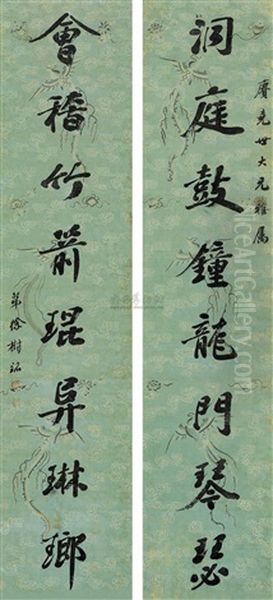 賡堯世大兄雅屬
洞庭鼓鐘龍門琴瑟
會稽竹箭琨异琳瑯
弟徐樹銘